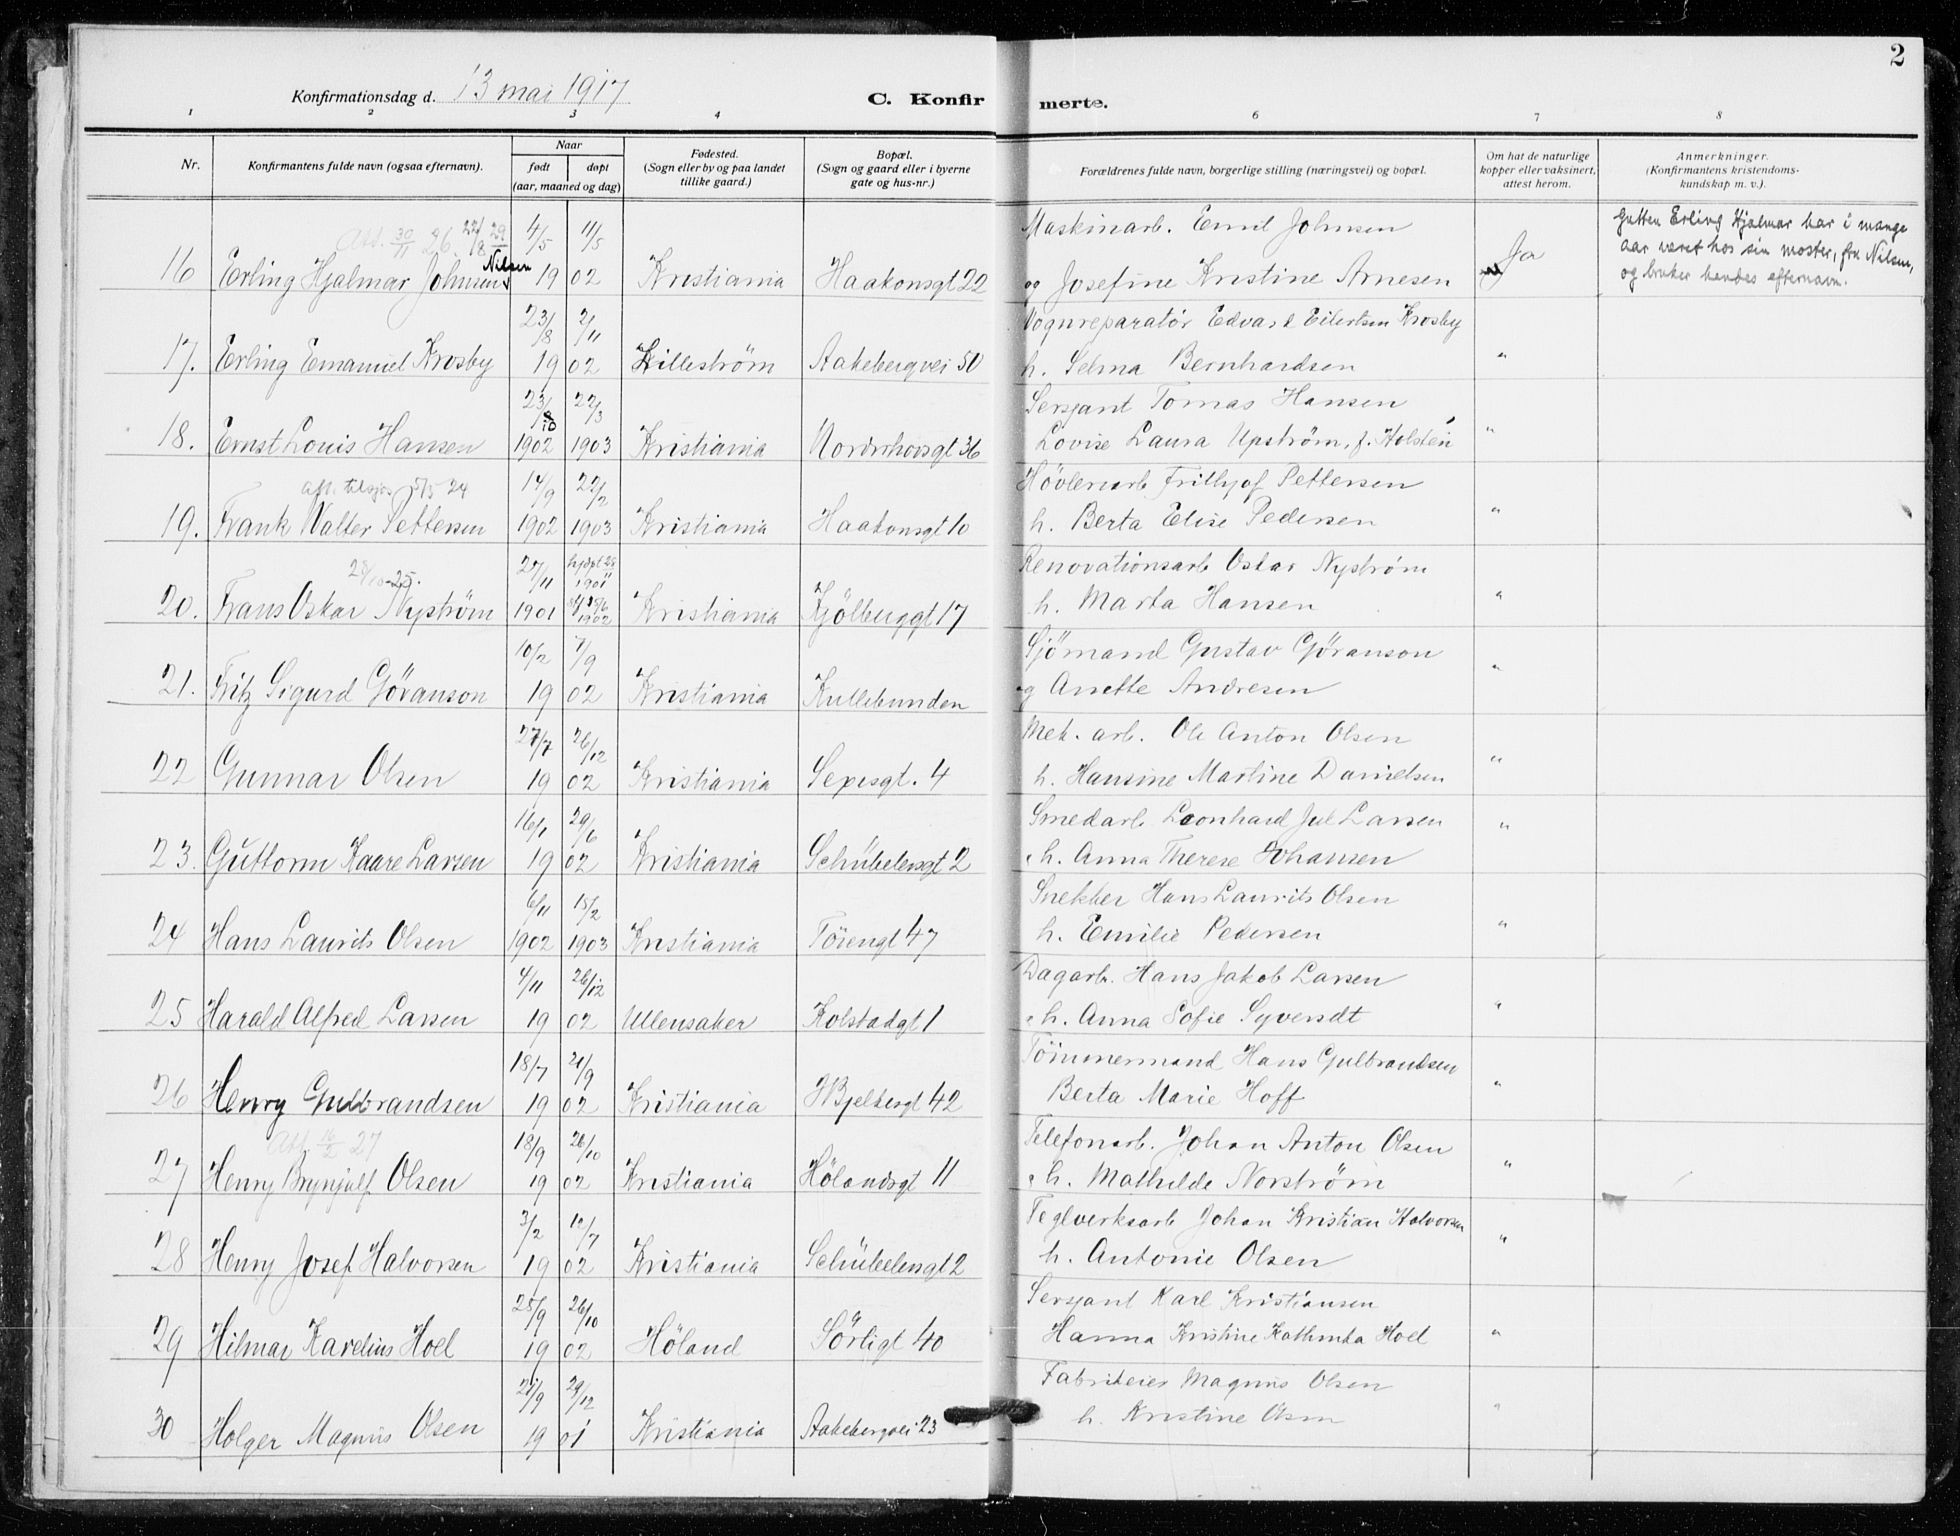 2
Konfirmationsdag d. 13 mai 1917
C. Konfirmerte.
1 2 3 4 6 7 8
Nr. Konfirmantens fulde navn (ogsaa efternavn). Naar født døpt (aar, maaned og dag) Fødested. (Sogn eller by og paa landet tillike gaard.) Bopæl. (Sogn og gaard eller i byerne gate og hus-nr.) Forældrenes fulde navn, borgerlige stilling (næringsvei) og bopæl. Om hat de naturlige kopper eller vaksinert, attest herom. Anmerkninger. (Konfirmantens kristendomskundskap m. v.).
Att. 30/11 26. 22/8 29 4/5 11/5 Maskinarb. Emil Johnsen
16 Erling Hjalmar Johnsen Nilsen 19 02 Kristiania Haakonsgt 22 og Josefine Kristine Arnesen Ja
Gutten Erling Hjalmar har i mange
aar været hos sin moster, fru Nilsen,
og bruker hendes efternavn.
23/8 2/11 Vognreparatør Edvard Eilertsen Krosby
17. Erling Emanuel Krosby 19 02 Lilleström Aakebergvei 50 h. Selma Bernhardsen "
23/10 22/3 Sersjant Tomas Hansen
18. Ernst Louis Hansen 1902 1903 Kristiania Nordrehovsgt 36 Lovise Laura Upström, f. Holstén "
att. tilsjøs 5/5 24 14/9 22/2 Hövleriarb. Frithjof Pettersen
19. Frank Walter Pettersen 1902 1903 Kristiania Haakonsgt 10 h. Berta Elise Pedersen "
28/10-25. 27/11 hjdpt 28/11 1901 Renovationsarb Oskar Nyström
20. Frans Oskar Nyström 1901 15/6 1902 Kristiania Kjölberggt 17 h. Marta Hansen "
10/2 7/9 Sjömand Gustav Göranson
21. Fritz Sigurd Göranson 19 02 Kristiania Kullebunden og Anette Andresen "
27/7 26/12 Mek. arb. Ole Anton Olsen
22 Gunnar Olsen 19 02 Kristiania Sexesgt. 4 h. Hansine Martine Danielsen "
16/1 29/6 Smedarb Leonhard Jul Larsen
23. Guttorm Kaare Larsen 19 02 Kristiania Schübelersgt 2 h. Anna Therese Johansen "
6/11 15/2 Snekker Hans Laurits Olsen
24 Hans Laurits Olsen 1902 1903 Kristiania Töiengt 47 h. Emilie Pedersen "
4/11 26/12 Dagarb. Hans Jakob Larsen
25 Harald Alfred Larsen 19 02 Ullensaker Kolstadgt 1 h. Anna Sofie Syverstdt "
18/7 21/9 Tömmermand Hans Gulbrandsen
26 Henry Gulbrandsen 19 02 Kristiania H Bjelkesgt 42 Berta Marie Hoff "
Att. 16/2 27 18/9 26/10 Telefonarb. Johan Anton Olsen
27 Henry Brynjulf Olsen 19 02 Kristiania Hölandsgt 11 h. Mathilde Norström "
3/2 12/7 Teglverksarb Johan Kristian Halvorsen
28 Henry Josef Halvorsen 19 02 Kristiania Schübelersgt 2 h. Antonie Olsen "
25/9 26/10 Sersjant Karl Kristiansen
29 Hilmar Karelius Hoel 19 02 Höland Sörligt 40 Hanna Kristine Kathinka Hoel "
21/9 29/12 Fabrikeier Magnus Olsen
30 Holger Magnus Olsen 19 01 Kristiania Aakebergvei 23 h. Kristine Olsen "